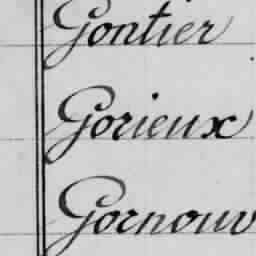 Gontier
Gorieux
Gornouv